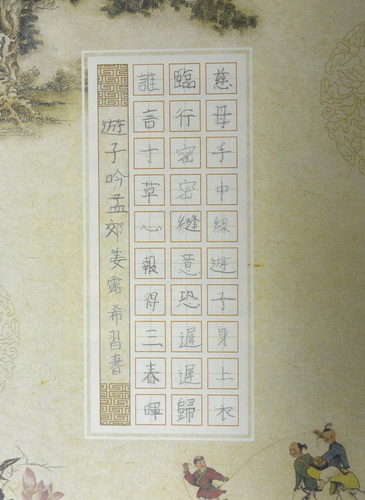 慈母手中線遊子身上衣
臨行密密縫意恐遲遲歸
誰言寸草心報得三春暉
遊子吟孟郊姜露希習書